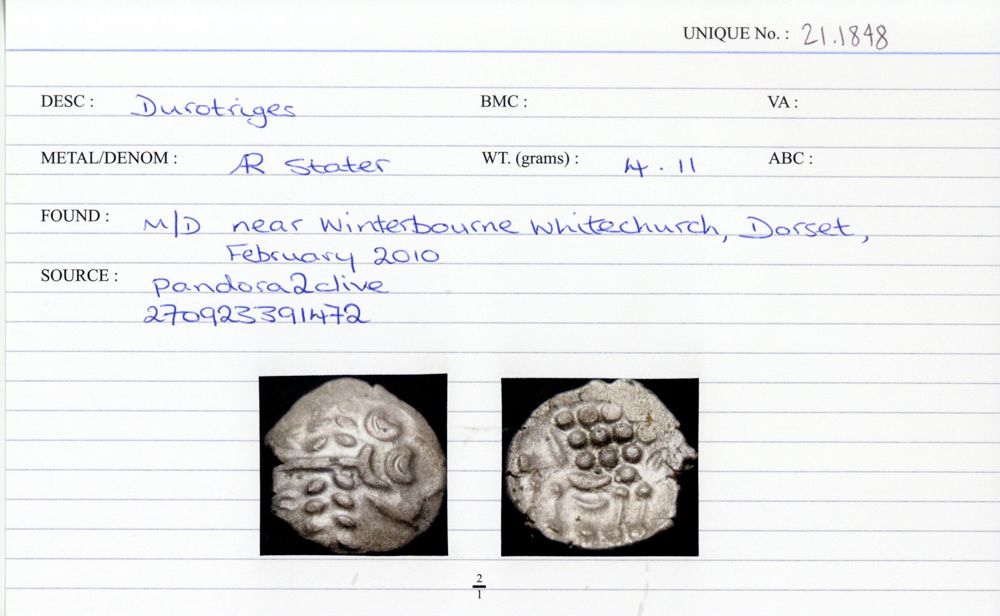 UNIQUE No. : 21.1848
DESC : Durotriges BMC : VA :
METAL/DENOM : AR Stater WT. (grams) : 4.11 ABC :
FOUND : M/D near Winterbourne Whitechurch, Dorset,
February 2010
SOURCE : pandora2clive
270923391472
2
1